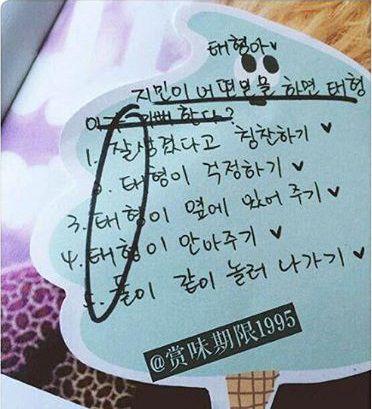 태형아♥
지민이 어떤 분을 하면 태형
이
1. 잘생겼다고 칭찬하기 ♥
2. 태형이 걱정하기 ♥
3. 태형이 옆에 있어 주기 ♥
4. 태형이 안아주기 ♥
5. 둘이 같이 놀러 나가기 ♥
@赏味期限1995